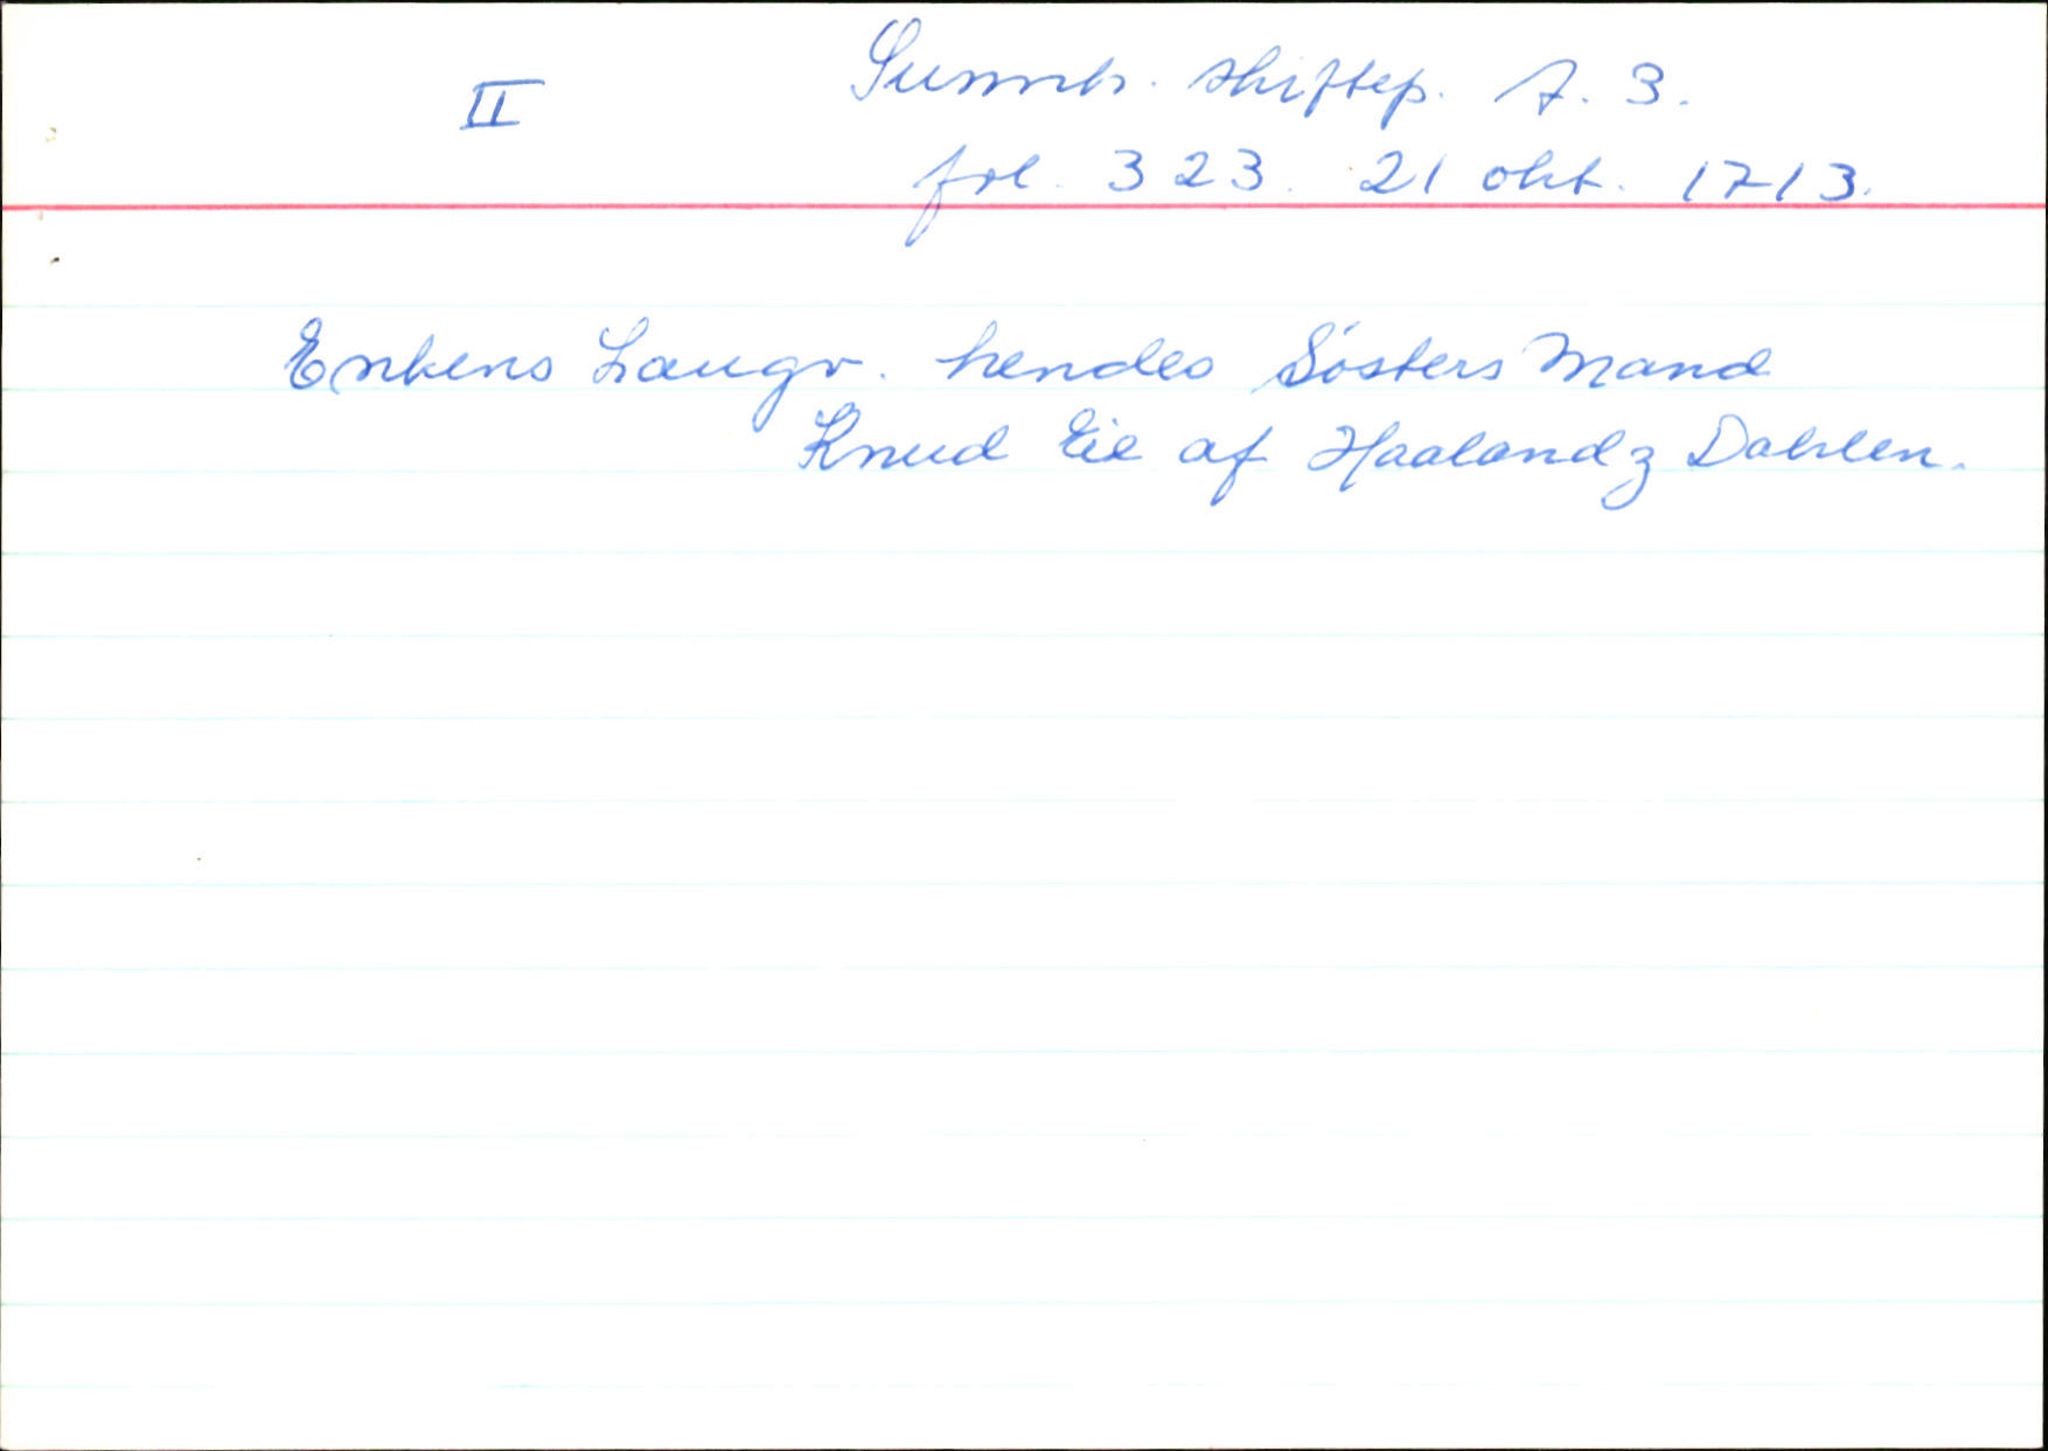 II
Sunnh. skiftep. A. 3.
fol. 323. 21 okt. 1713.
Enkens Laugv. hendes Søsters Mand
Knud Eie af Haalandz Dahlen.